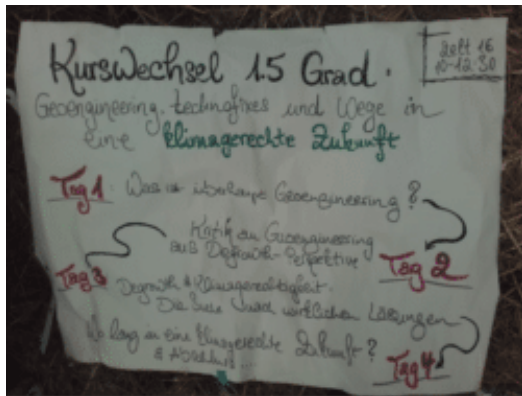 Kurswechsel 1.5 Grad.
Zelt 16
10-12:30
Geoengineering, technofixes und Wege in
eine klimagerechte Zukunft
Tag 1: Was ist überhaupt Geoengineering?
Kritik am Geoengineering
aus Degrowth-Perspektive
Tag 2
Tag 3
Degrowth & Klimagerechtigkeit.
Die Suche nach wirklichen Lösungen
Wo lang in eine klimagerechte Zukunft?
& Abschluss...
Tag 4